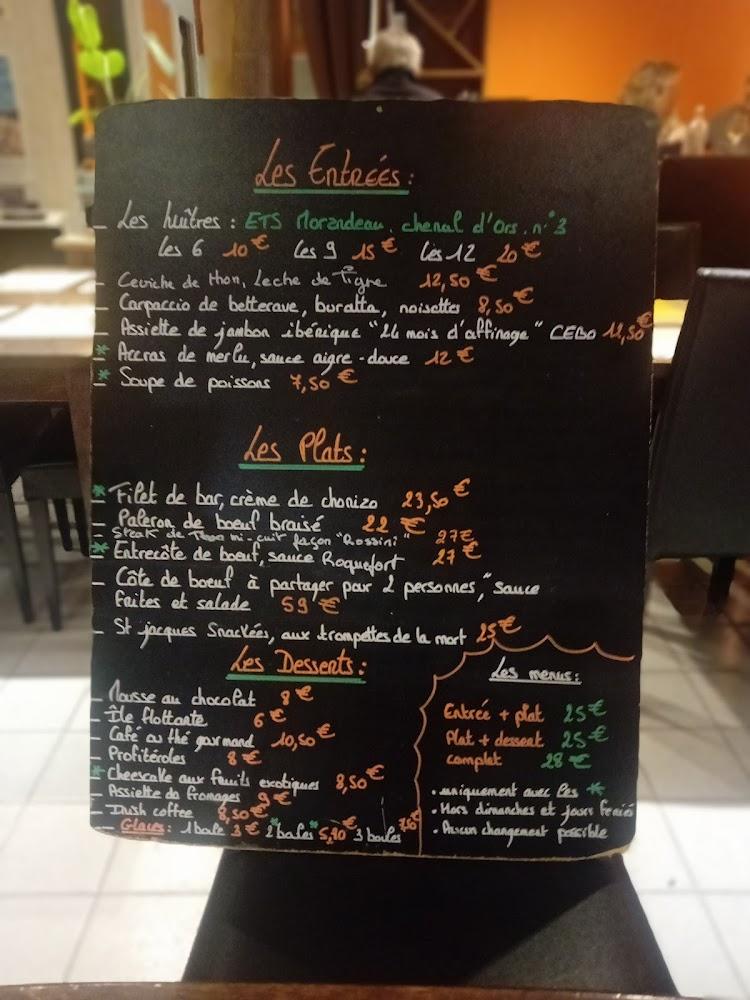 Les Entrées :
_ Les huîtres : ETS Morandeau, chenal d'Ors, n°3
Les 6 10€ Les 9 15€ Les 12 20€
- Ceviche de thon, Leche de Tigre 12,50€
- Carpaccio de betterave, buratta, noisettes 8,50€
- Assiette de jambon ibérique "24 mois d'affinage" CEBO
* Accras de merlu, sauce aigre-douce 12€
* Soupe de poissons 7,50€
Les Plats :
* Filet de bar, crème de chorizo 23,50€
- Paleron de boeuf braisé 22€
- Steak de Thon mi-cuit façon "Rossini" 27€
* Entrecôte de boeuf, sauce Roquefort 27€
- Côte de boeuf à partager pour 2 personnes, sauce
frites et salade 59€
- St jacques Snackées, aux trompettes de la mort 25€
Les Desserts :
- Mousse au chocolat 8€
- Île flottante 6€
- Café ou thé gourmand 10,50€
- Profitéroles 8€
* Cheescake aux fruits exotiques 8,50€
- Assiette de fromages 9€
- Irish coffee 8,50€
- Glaces : 1 bale 3€ * 2 bales * 3 boules
Les menus :
Entrée + plat 25€
Plat + dessert 25€
complet 28€
. uniquement avec les *
. Hors dimanches et jours feriés
. Aucun changement possible